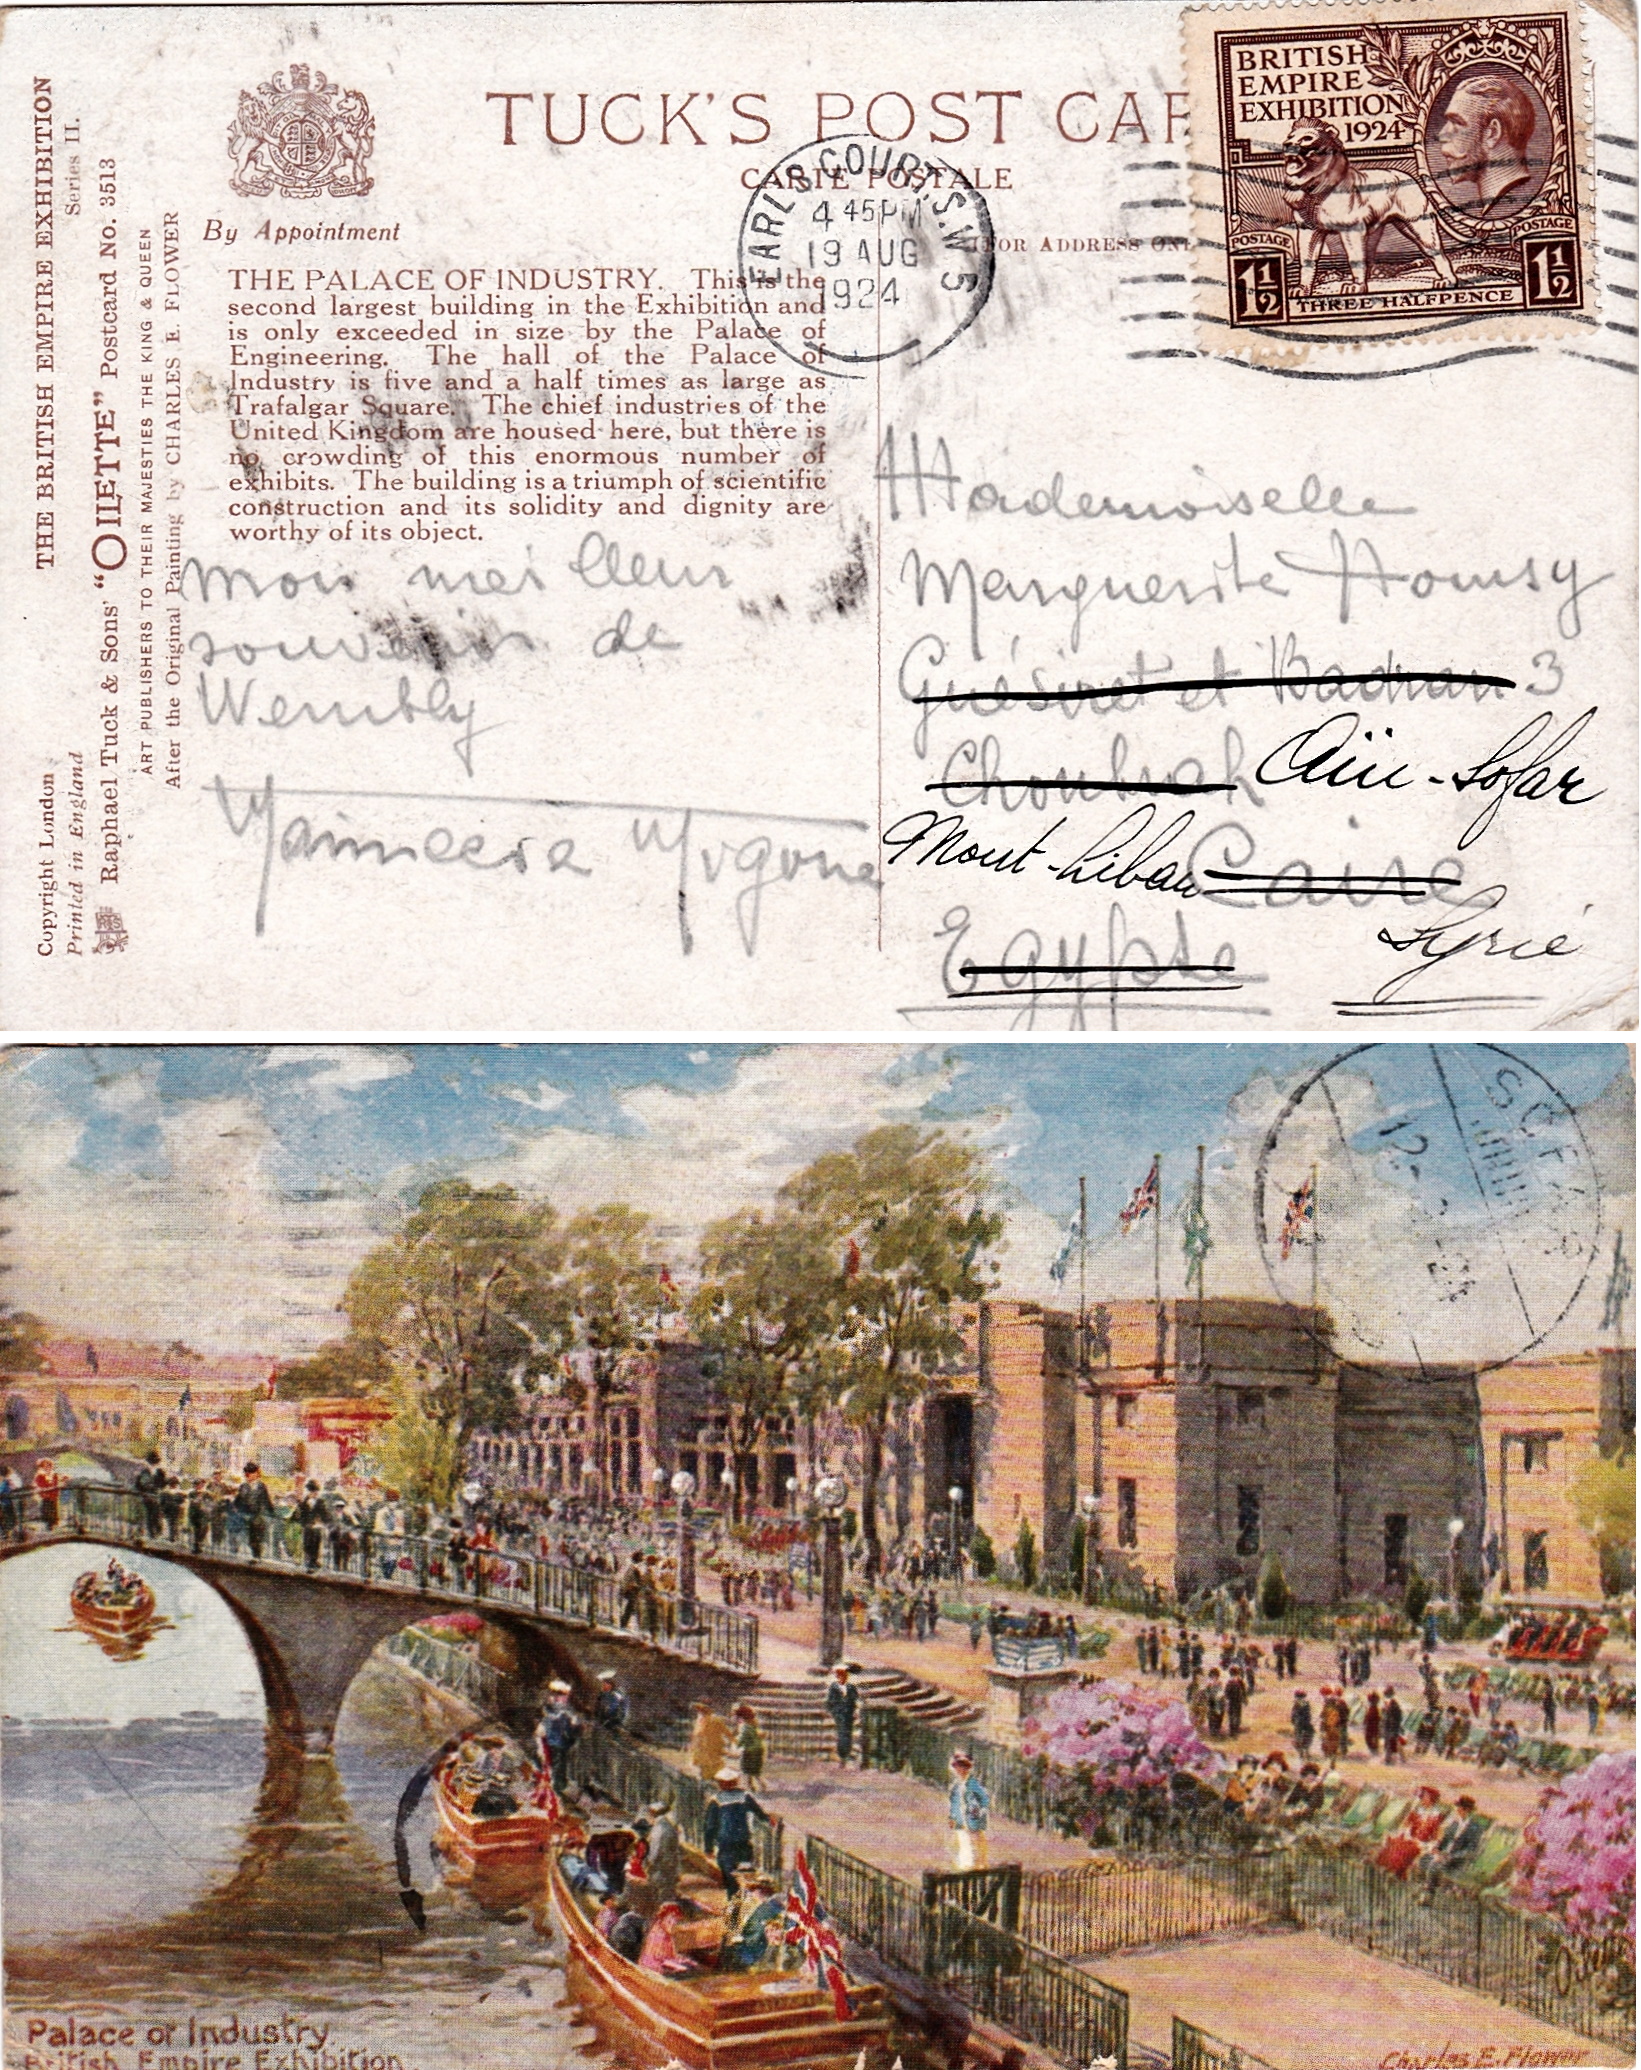 THE BRITISH EMPIRE EXHIBITION
Series II.
Raphael Tuck & Sons' "OILETTE" Postcard No. 3513
ART PUBLISHERS TO THEIR MAJESTIES THE KING & QUEEN
After the Original Painting by CHARLES E. FLOWER
Copyright London
Printed in England
By Appointment
TUCK'S POST CAR
CARTE POSTALE
FOR ADDRESS ONL
THE PALACE OF INDUSTRY. This is the
second largest building in the Exhibition and
is only exceeded in size by the Palace of
Engineering. The hall of the Palace of
Industry is five and a half times as large as
Trafalgar Square. The chief industries of the
United Kingdom are housed here, but there is
no crowding of this enormous number of
exhibits. The building is a triumph of scientific
construction and its solidity and dignity are
worthy of its object.
EARLS COURT. S.W.5
4 45PM
19 AUG
1924
BRITISH
EMPIRE
EXHIBITION
1924
POSTAGE
POSTAGE
1½
THREE HALFPENCE
1½
Mon meilleur
souvenir de
Wembly
Mademoiselle
Marguerite Homsy
Guésiret et Badran 3
Choubrah Aïn-Sofar
Mont-Liban Caire
Egypte Syrie
SOFAR
12
Palace of Industry.
British Empire Exhibition
Charles E. Flower